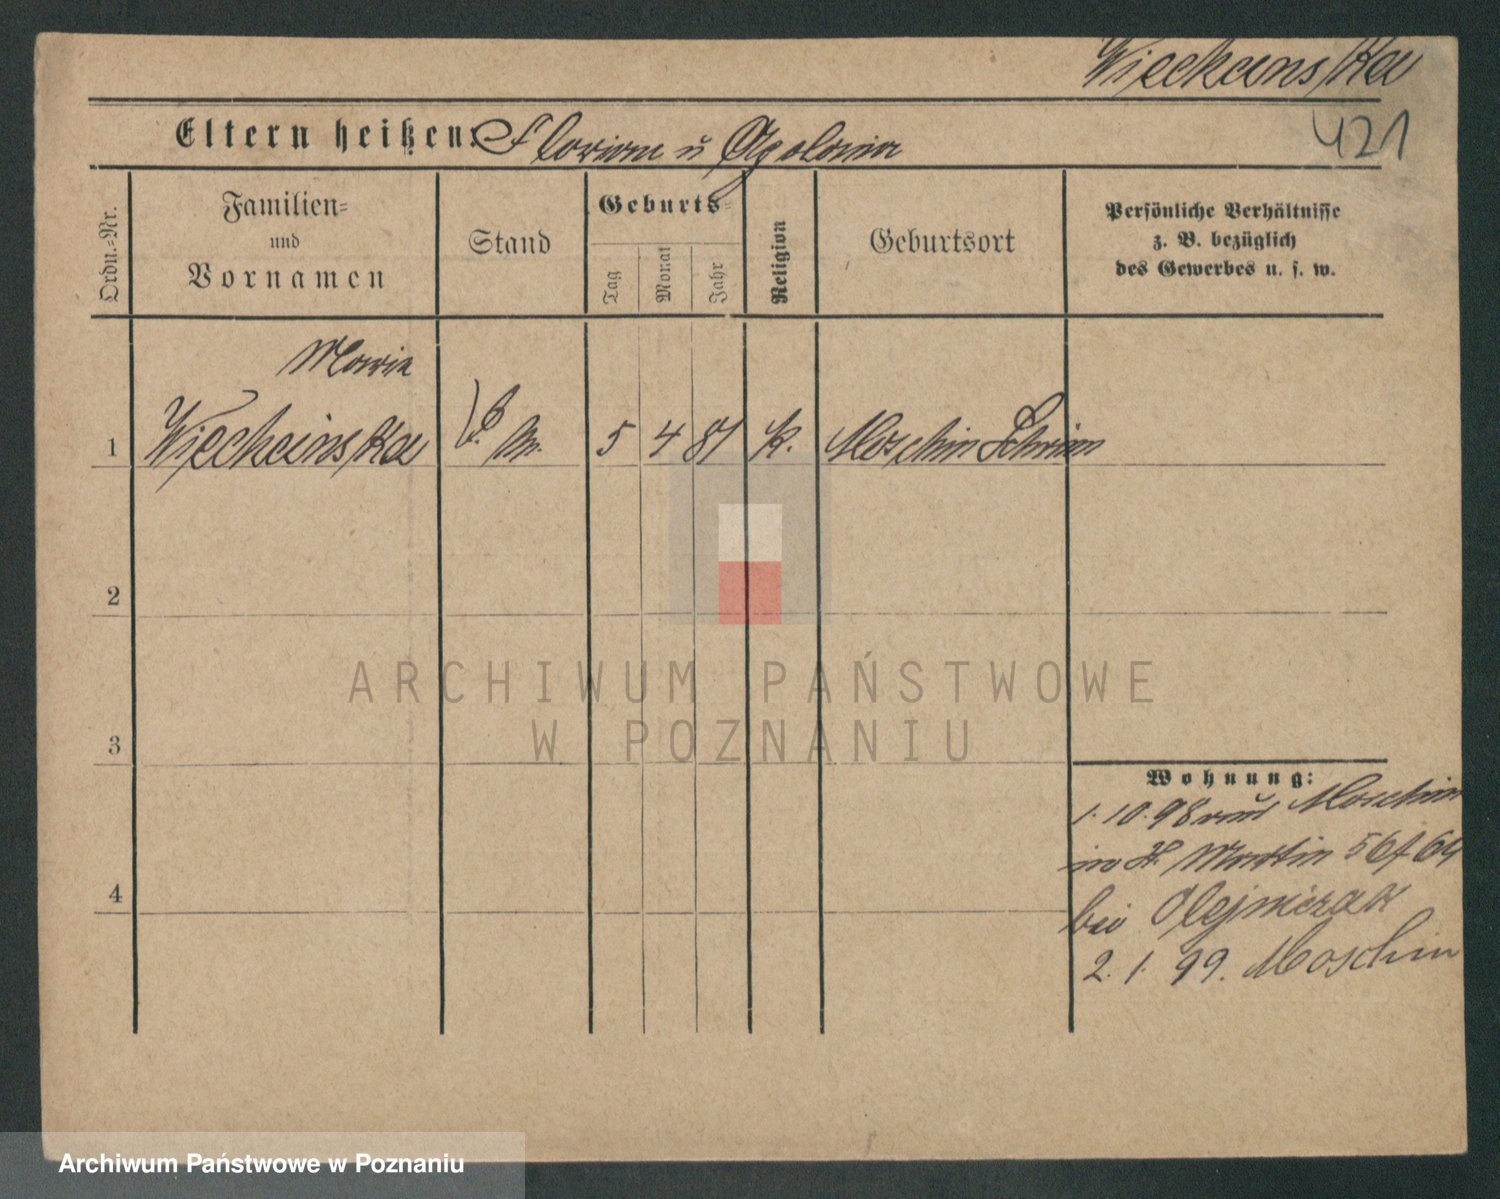 Wieckanska
421
Eltern heißen: Florian u Apolonia
Ordn.-Nr.
Familien-
und
Vornamen
Stand
Geburts-
Tag
Monat
Jahr
Religion
Geburtsort
Persönliche Verhältnisse
z. B. bezüglich
des Gewerbes u. s. w.
Marie
1 5 4 81 k. Moschin Schrim
2
3
4
Wohnung:
1. 10. 98 Moschin
St. Martin
bei Olejniczak
2. 1. 99. Moschin
ARCHIWUM PAŃSTWOWE
W POZNANIU
Archiwum Państwowe w Poznaniu